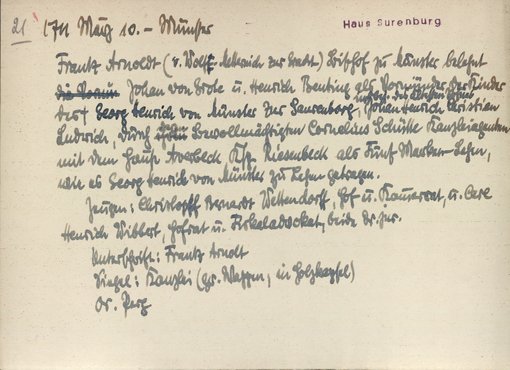 21 1711 März 10. – Münster
Haus Surenburg
Frantz Arnoldt (v. Wolff Metternich zur Gracht) Bischof zu Münster belehnt
Johan von Grote u. Henrich Benting als Vormünder der Kinder
des † Georg Henrich von Münster zur Surenborg, Johan Henrich Christian
Ludwich, durch Bevollmächtigten Cornelius Schütte Kanzleiagenten
mit dem Hause Averbeck Ksp. Riesenbeck als Fünf Marken Lehen,
wie es Georg Henrich von Münster zu Lehen getragen.
Zeugen: Christopff Bernardt Wettendorff, Hof u. Kammerrat, u. Carl
Henrich Wibbert, Hofrat u. Fiskaladvokat, beide Dr. jur.
Unterschrift: Frantz Arnolt
Siegel: Kanzlei (gr. Wappen, in Holzkapsel)
Or. Perg